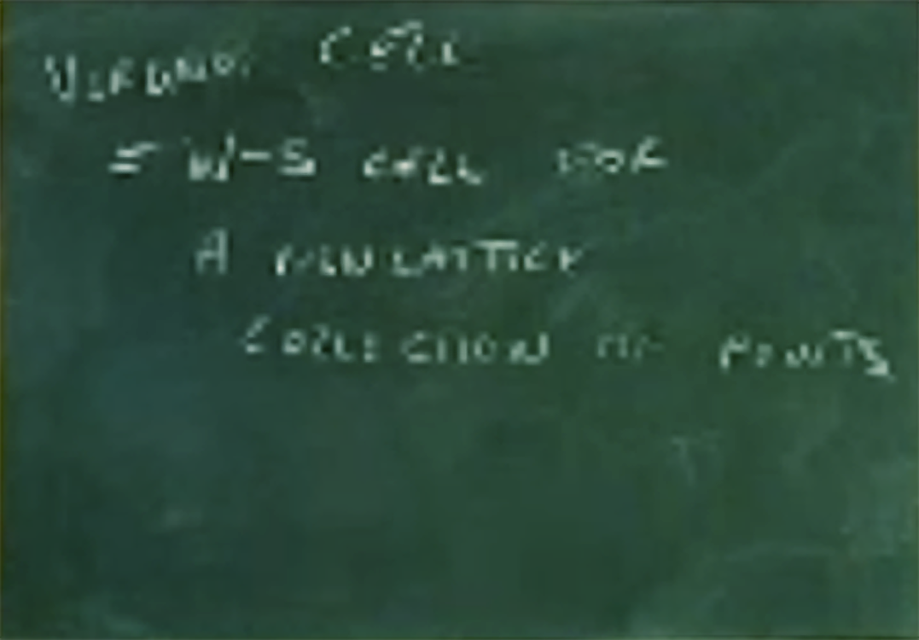 VORONOI CELL
= W-S CELL FOR
A NON LATTICE
COLLECTION OF POINTS